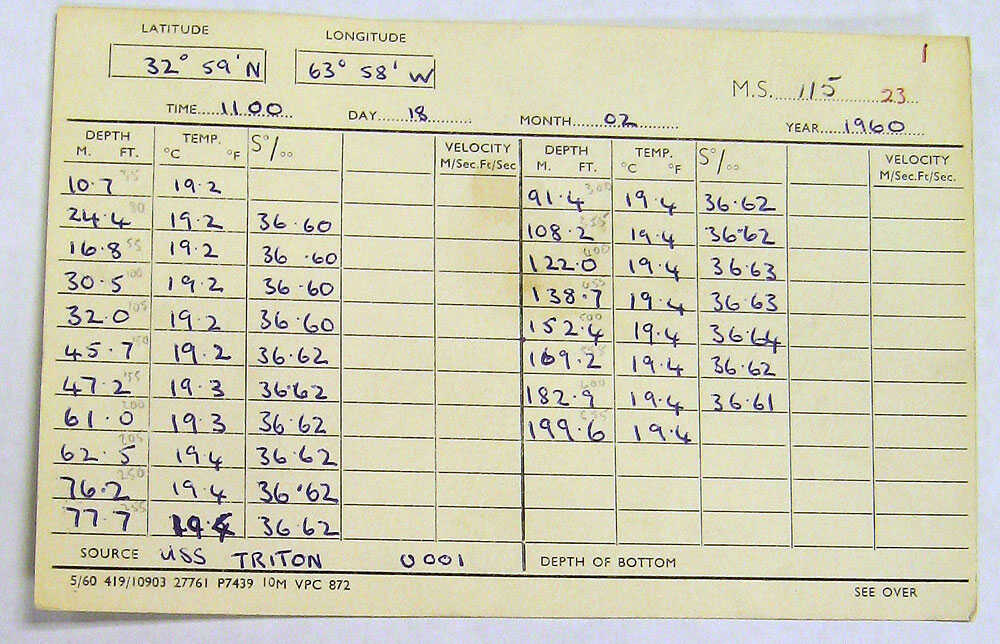 LATITUDE LONGITUDE 1
32° 59' N 63° 58' W M.S. 115 23
TIME 1100 DAY 18 MONTH 02 YEAR 1960
DEPTH TEMP. S°/oo VELOCITY DEPTH TEMP. S°/oo VELOCITY
M. FT. °C °F M/Sec.Ft/Sec M. FT. °C °F M/Sec.Ft/Sec.
10.7 35 19.2 91.4 300 19.4 36.62
24.4 80 19.2 36.60 108.2 355 19.4 36.62
16.8 55 19.2 36.60 122.0 400 19.4 36.63
30.5 100 19.2 36.60 138.7 455 19.4 36.63
32.0 105 19.2 36.60 152.4 500 19.4 36.64
45.7 150 19.2 36.62 169.2 19.4 36.62
47.2 155 19.3 36.62 182.9 600 19.4 36.61
61.0 200 19.3 36.62 199.6 655 19.4
62.5 205 19.4 36.62
76.2 250 19.4 36.62
77.7 255 19.4 36.62
SOURCE USS TRITON 0001 DEPTH OF BOTTOM
5/60 419/10903 27761 P7439 10M VPC 872 SEE OVER